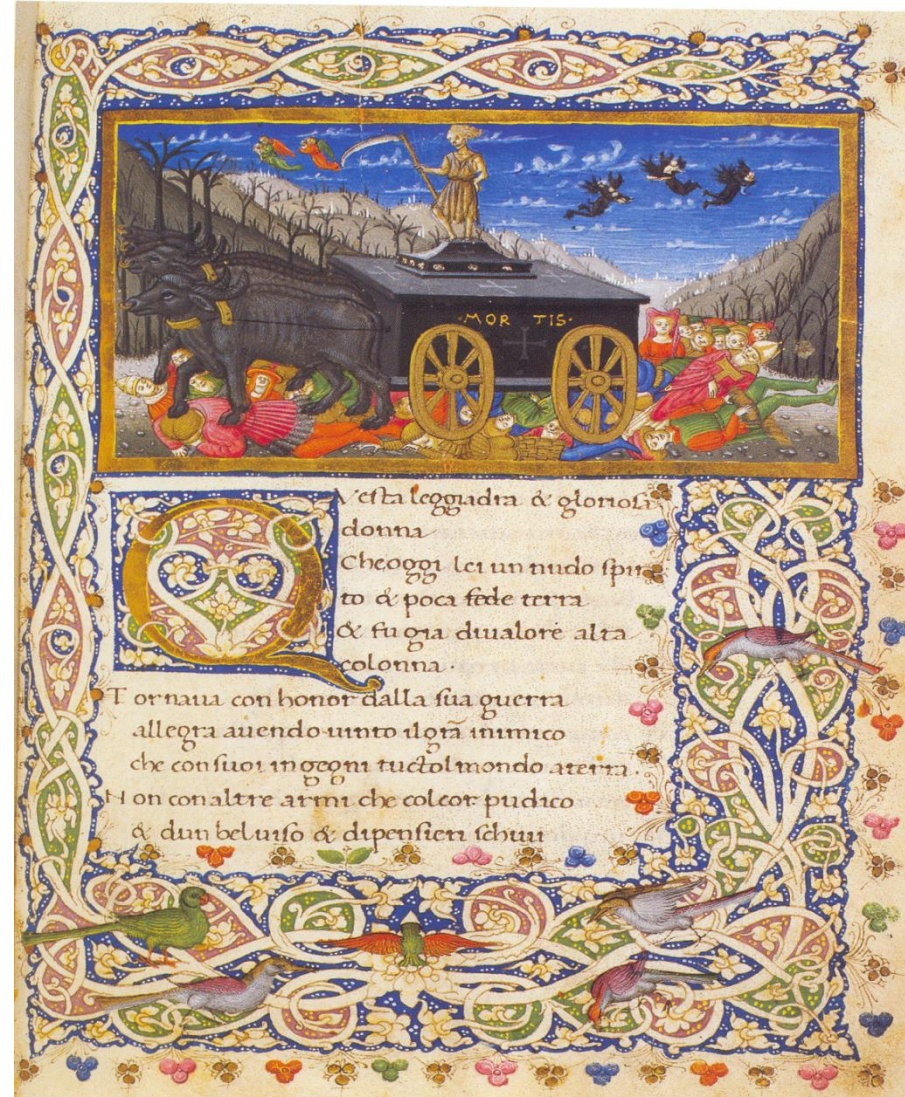 MORTIS
Questa leggiadra & gloriosa
donna
Cheoggi lei un nudo spiri
to & poca fede terra
& fu gia diualore alta
colonna
Tornaua con honor dalla sua guerra
allegra auendo uinto ilgrã inimico
che consuoi ingegni tuctol mondo aterra.
Non conaltre armi che colcor pudico
& dun beluiso & dipensieri schiui